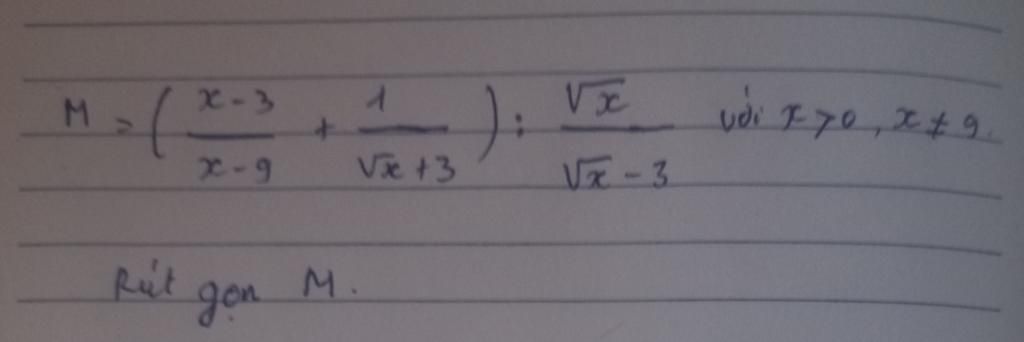 M = ( x-3 / x-9 + 1 / √x+3 ) : √x / √x-3 với x>0, x≠9.
Rút gọn M.